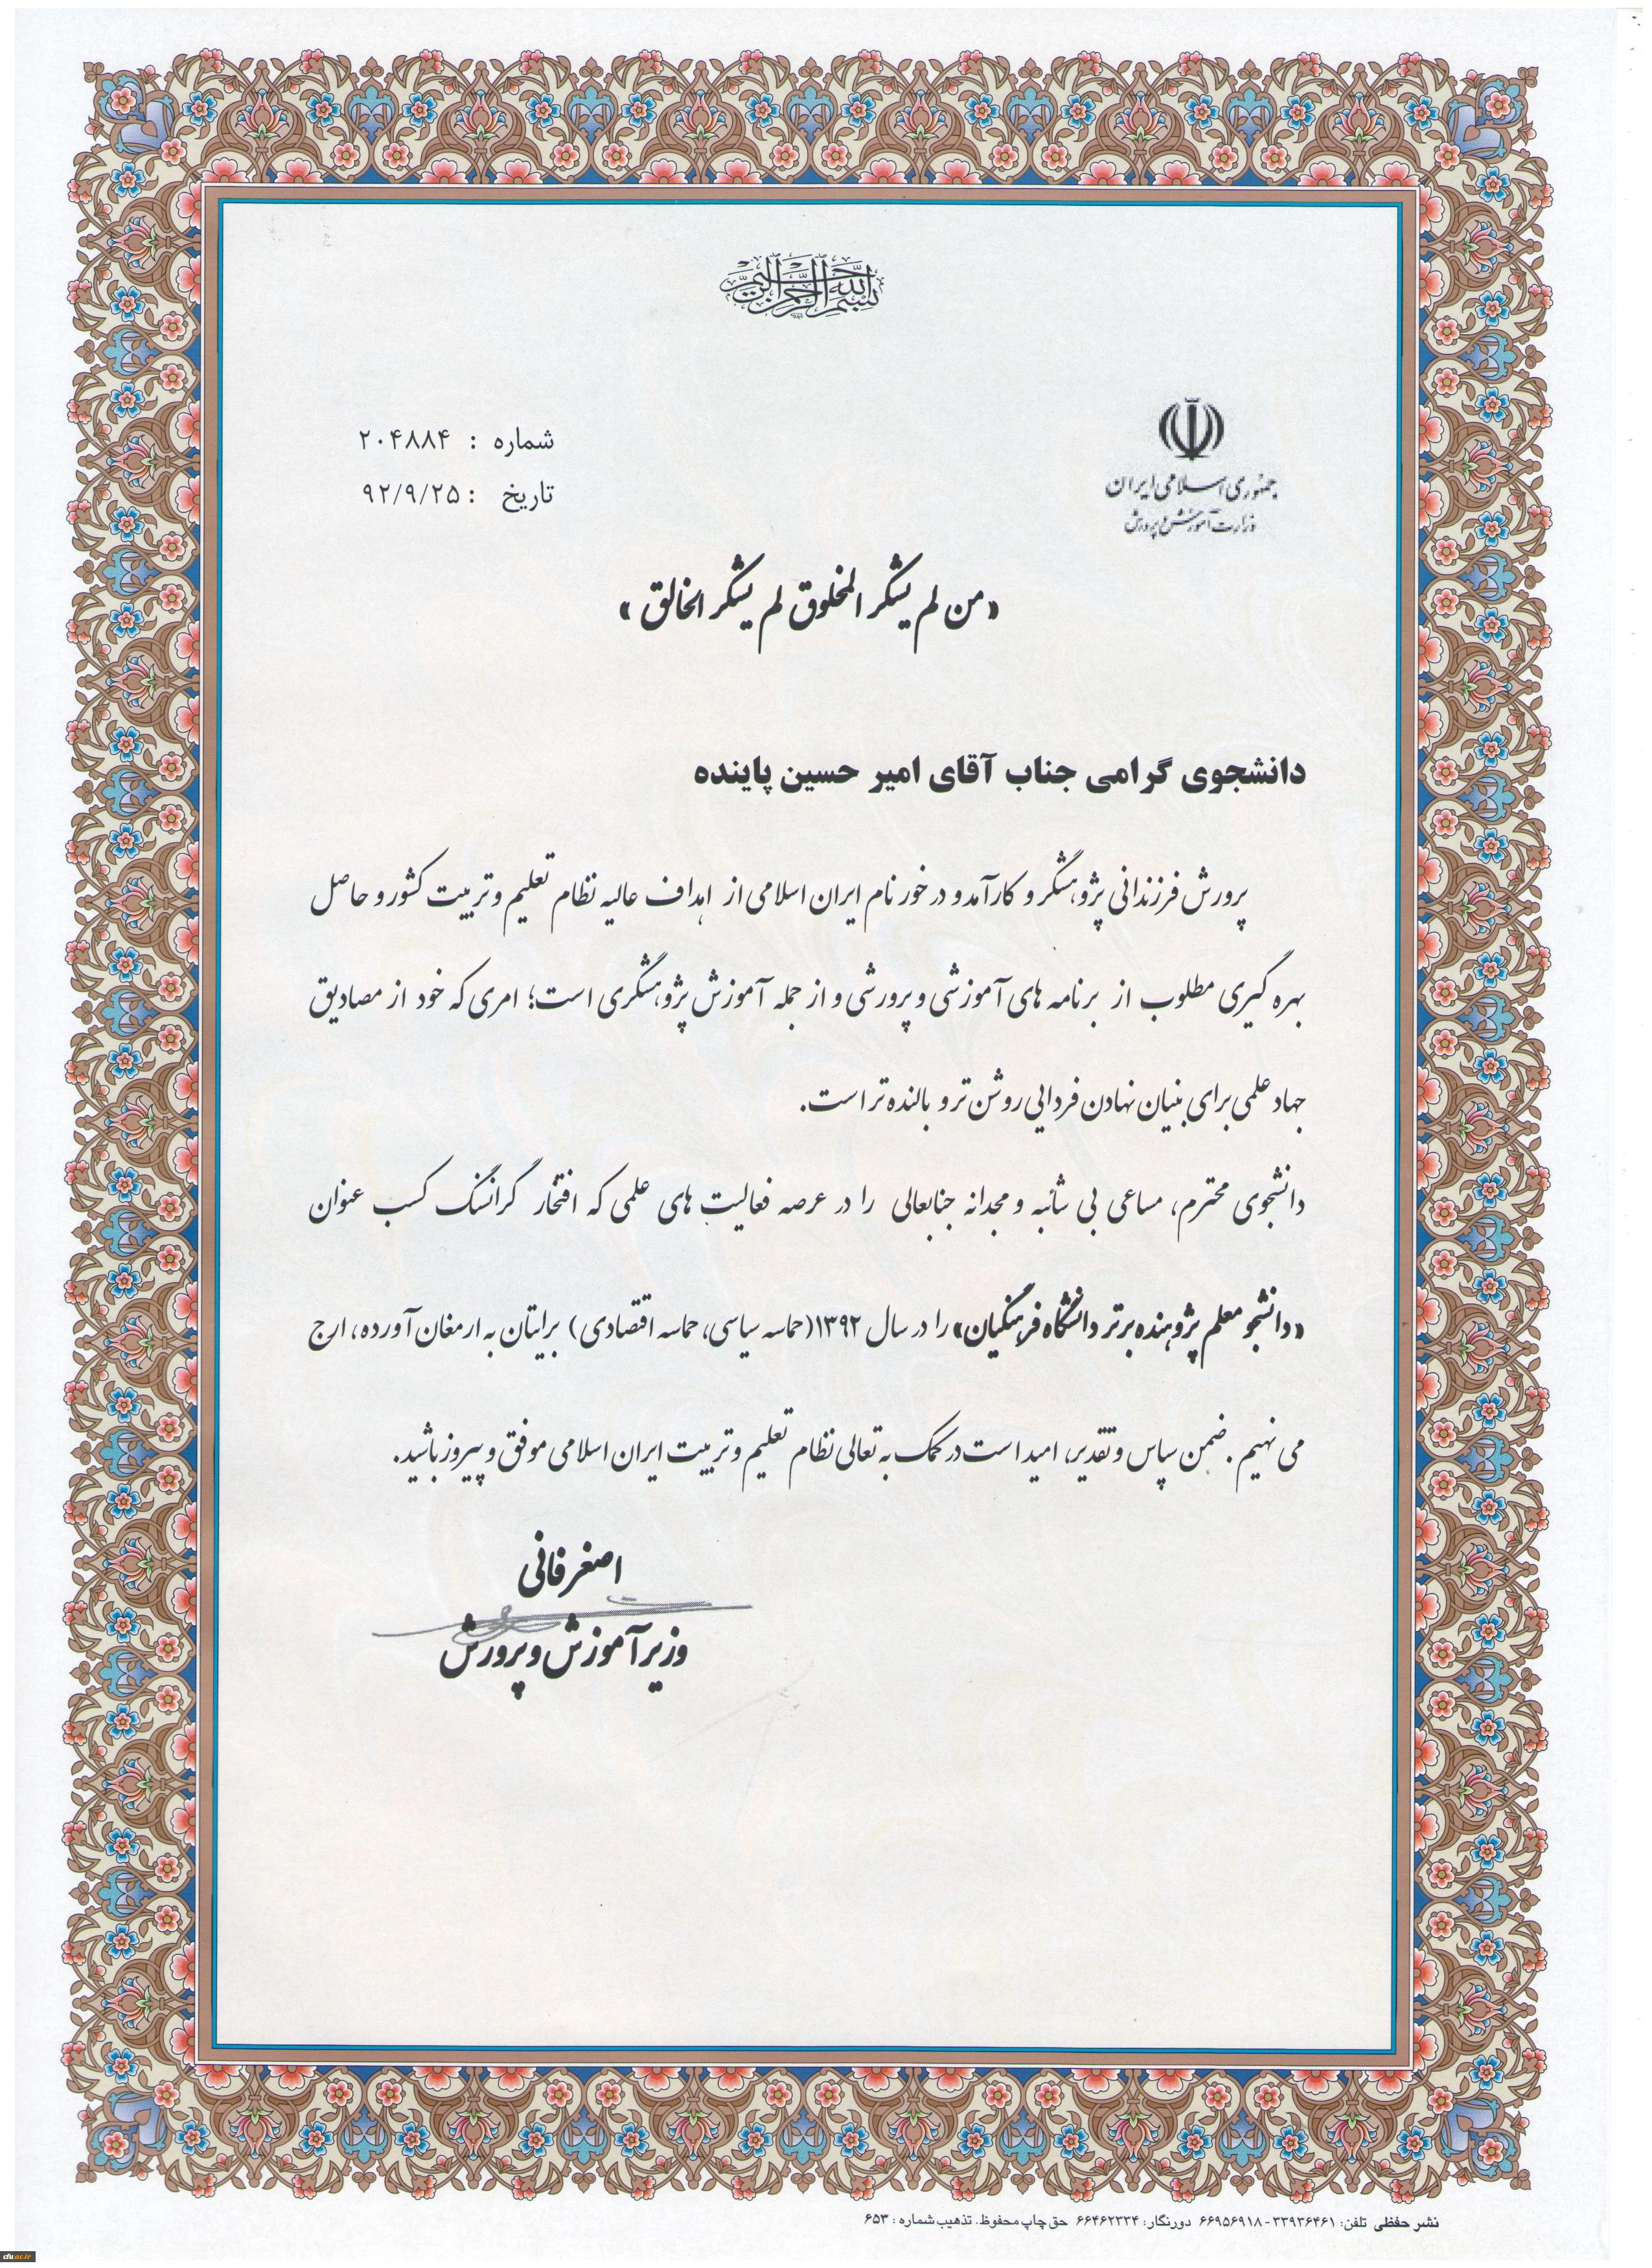 بسم الله الرحمن الرحیم
جمهوری اسلامی ایران
وزارت آموزش و پرورش
شماره : ۲۰۴۸۸۴
تاریخ : ۹۲/۹/۲۵
«من لم یشکر المخلوق لم یشکر الخالق»
دانشجوی گرامی جناب آقای امیر حسین پاینده
پرورش فرزندانی پژوهشگر و کارآمد و در خور نام ایران اسلامی از اهداف عالیه نظام تعلیم و تربیت کشور و حاصل
بهره گیری مطلوب از برنامه های آموزشی و پرورشی و از جمله آموزش پژوهشگری است؛ امری که خود از مصادیق
جهاد علمی برای بنیان نهادن فردایی روشن تر و بالنده تر است.
دانشجوی محترم، مساعی بی شائبه و مجدانه جنابعالی را در عرصه فعالیت های علمی که افتخار گرانسنگ کسب عنوان
«دانشجو معلم پژوهنده برتر دانشگاه فرهنگیان» را در سال ۱۳۹۲(حماسه سیاسی، حماسه اقتصادی) برایتان به ارمغان آورده، ارج
می نهیم. ضمن سپاس و تقدیر، امید است در کمک به تعالی نظام تعلیم و تربیت ایران اسلامی موفق و پیروز باشید.
اصغر فانی
وزیر آموزش و پرورش
نشر حفظی تلفن: ۳۳۹۳۶۴۶۱-۶۶۹۵۶۹۱۸ دورنگار: ۶۶۴۶۲۳۳۴ حق چاپ محفوظ. تذهیب شماره : ۶۵۳
cfu.ac.ir